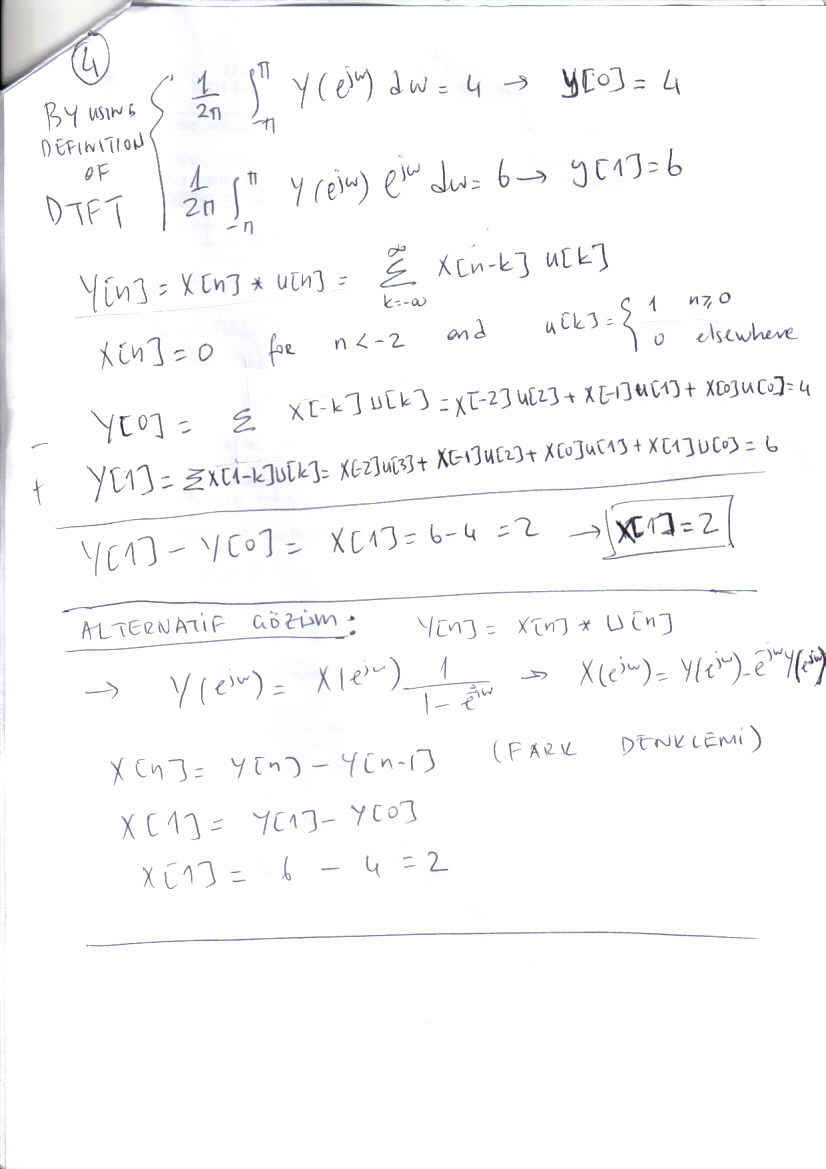 4
BY USING DEFINITION OF DTFT
1/2π ∫_{-π}^{π} Y(e^{jw}) dw = 4 → y[0] = 4
1/2π ∫_{-π}^{π} Y(e^{jw}) e^{jw} dw = 6 → y[1] = 6
Y[n] = X[n] * u[n] = Σ_{k=-∞}^{∞} X[n-k] u[k]
X[n] = 0 for n < -2 and u[k] = { 1 n≥0
0 elsewhere
- Y[0] = Σ X[-k] u[k] = X[-2]u[2] + X[-1]u[1] + X[0]u[0] = 4
+ Y[1] = ΣX[1-k]u[k] = X[-2]u[3] + X[-1]u[2] + X[0]u[1] + X[1]u[0] = 6
Y[1] - Y[0] = X[1] = 6-4 = 2 → X[1] = 2
ALTERNATİF ÇÖZÜM: Y[n] = X[n] * U[n]
→ Y(e^{jw}) = X(e^{jw}) 1/(1 - e^{-jw}) → X(e^{jw}) = Y(e^{jw}) - e^{-jw} Y(e^{jw})
X[n] = Y[n] - Y[n-1] (FARK DENKLEMİ)
X[1] = Y[1] - Y[0]
X[1] = 6 - 4 = 2